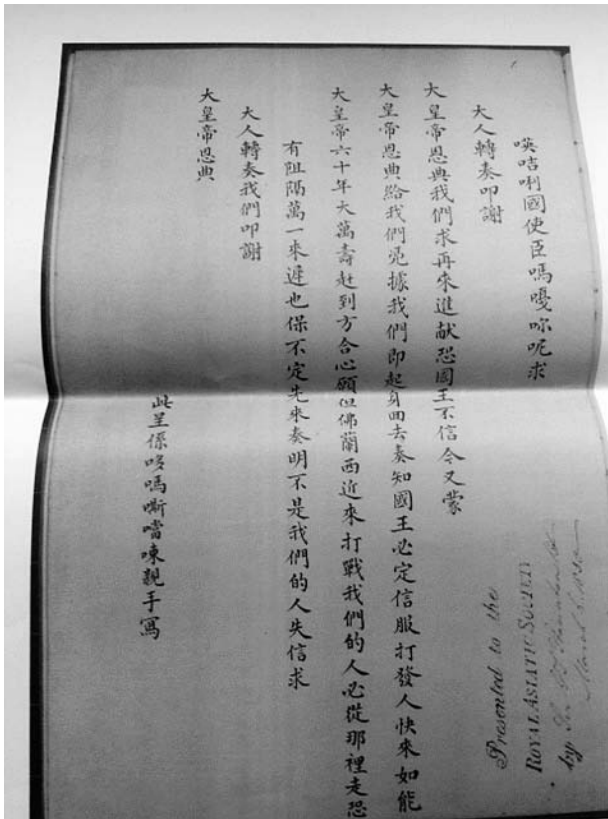 𠸄咭唎國使臣嗎嘎𠰷呢求
大人轉奏叩謝
大皇帝恩典我們求再來進献恐國王不信今又蒙
大皇帝恩典給我們凭據我們即起身回去奏知國王必定信服打發人快來如能
大皇帝六十年大萬壽赶到方合心願但佛蘭西近來打戰我們的人必從那裡走恐
有阻隔萬一來遲也保不定先來奏明不是我們的人失信求
大人轉奏我們叩謝
大皇帝恩典
此呈係哆嗎嘶噹㖦親手寫
Presented to the
ROYAL ASIATIC SOCIETY
by Sir G. T. Staunton Bt